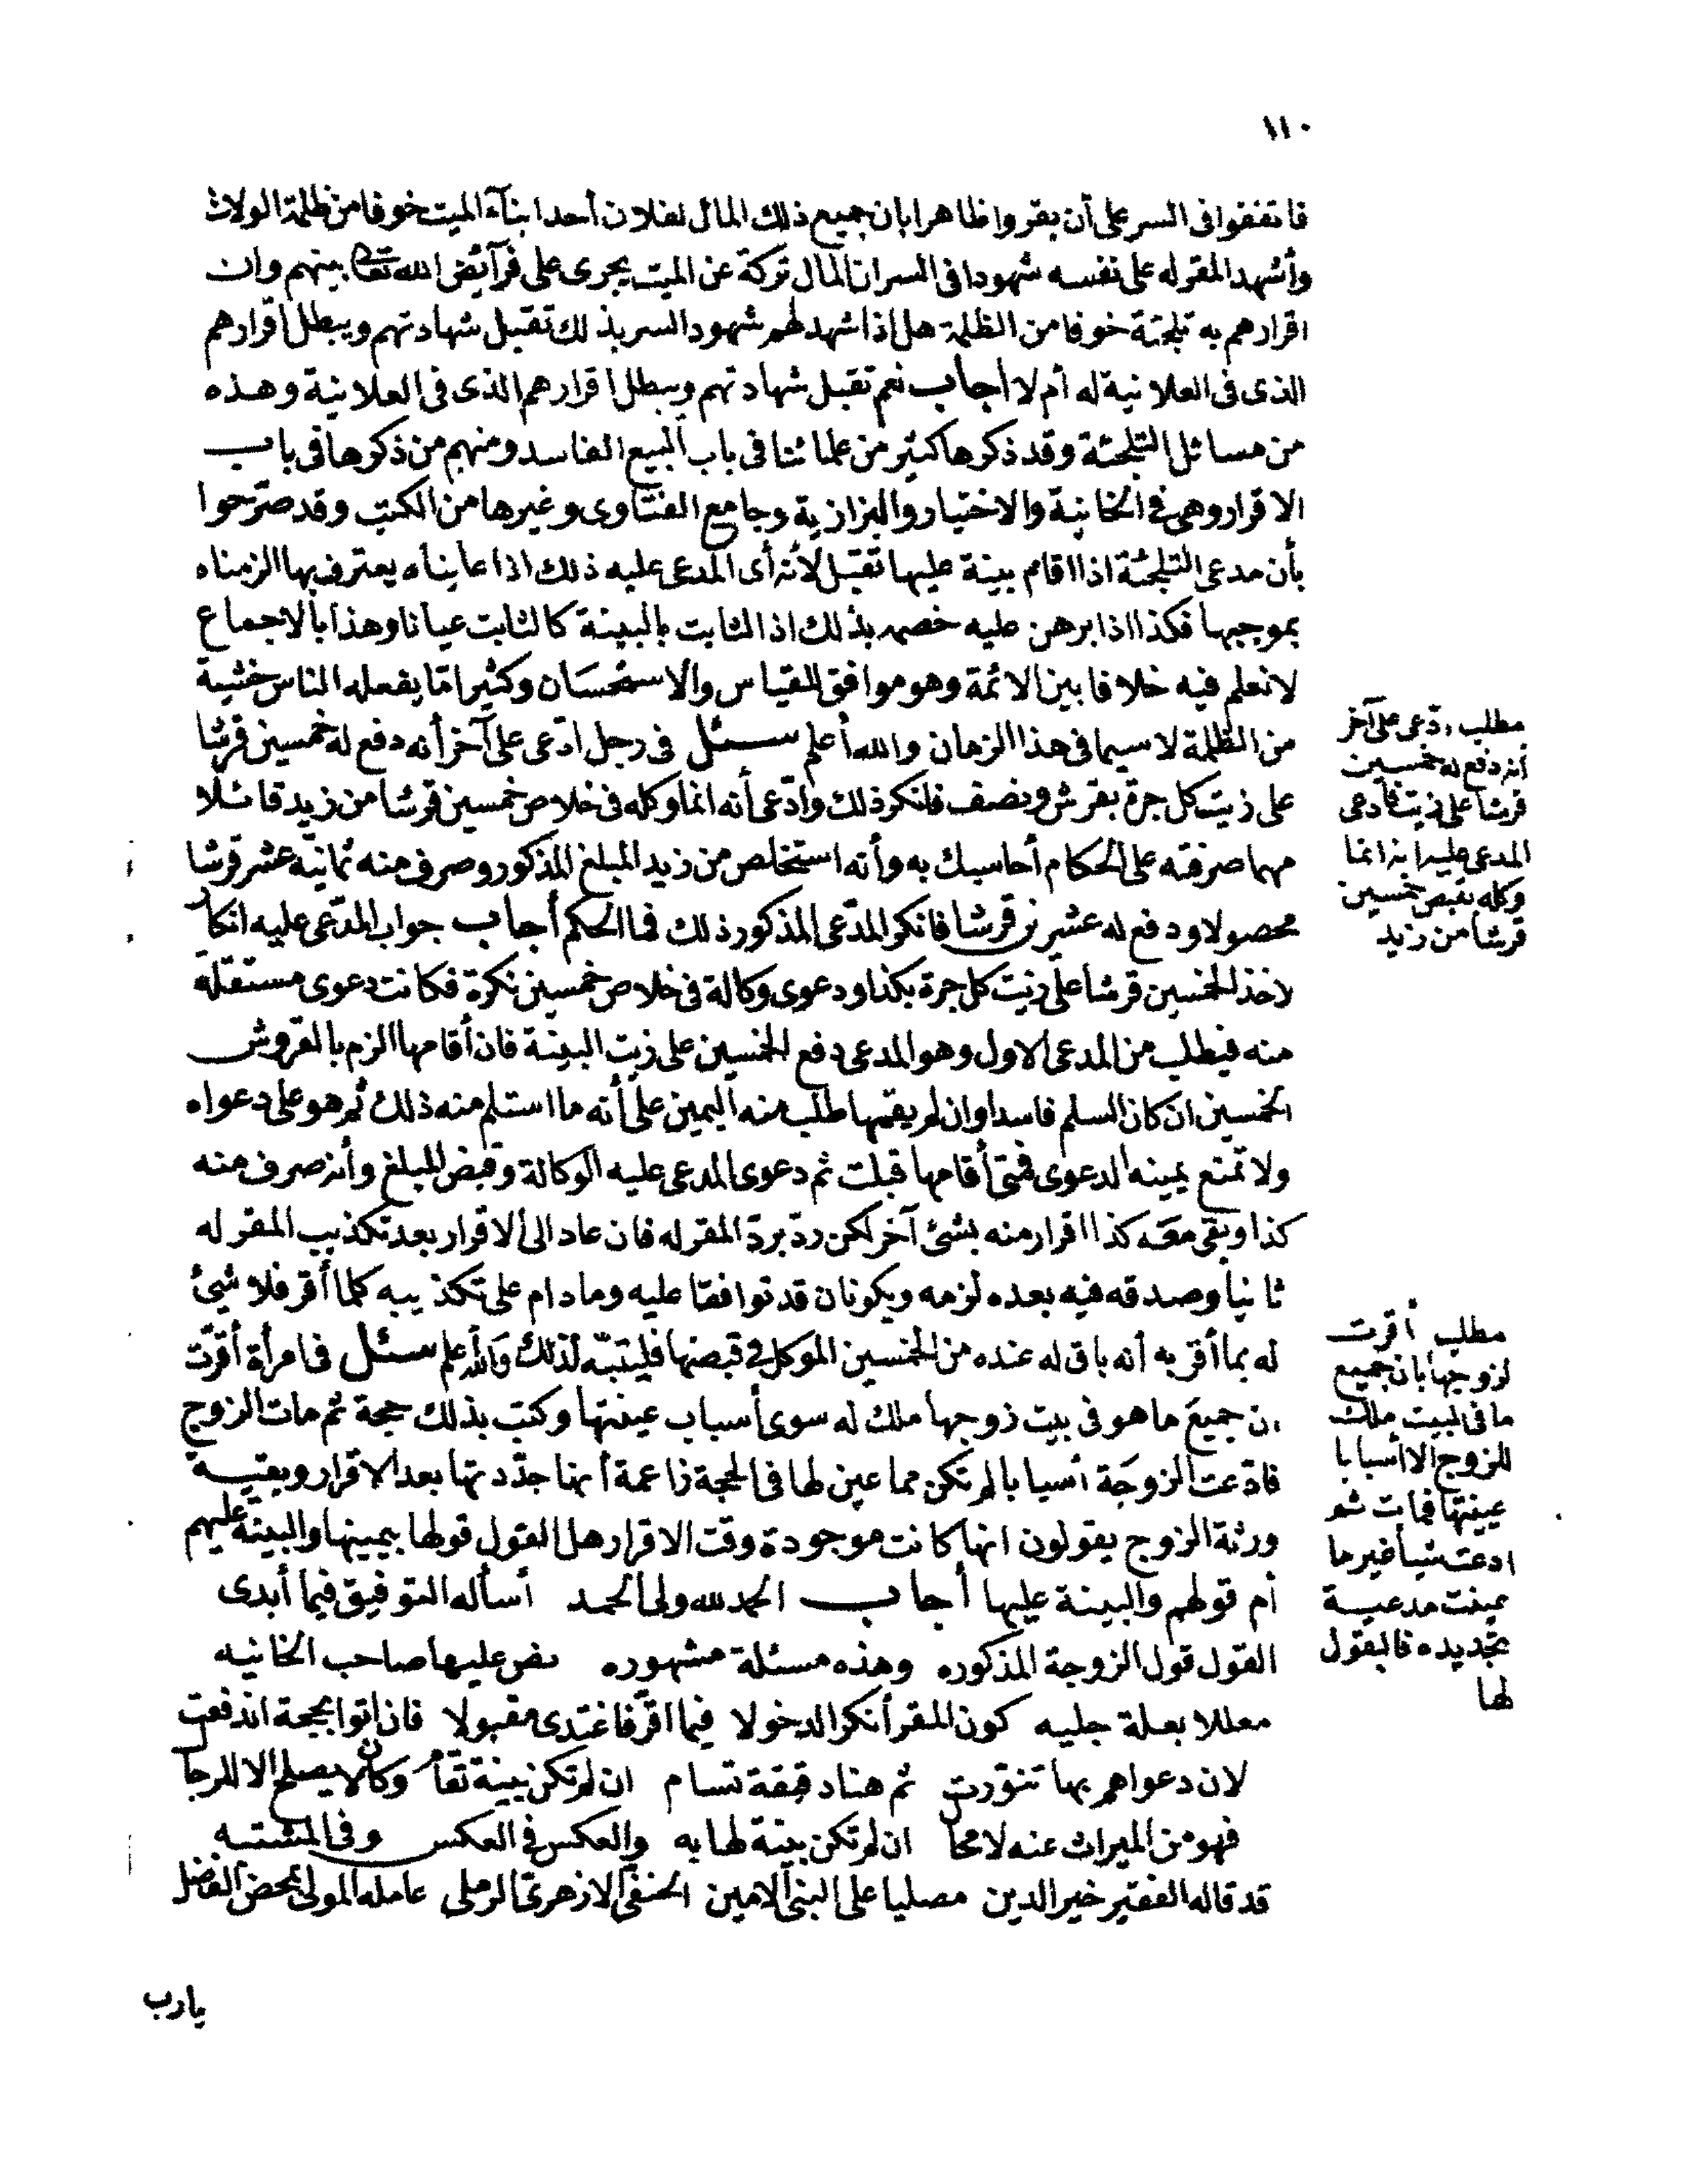 ١١٠
فاتفقوا فى السر على أن يقروا ظاهرا بان جميع ذلك المال لفلان أحد ابناء الميت خوفا من ظلمة الولاة
وأشهد المقر له على نفسه شهودا فى السر ان المال تركة عن الميت يجرى على فرآئض الله تعالى بينهم وان
اقرارهم به تلجئة خوفا من الظلمة هل اذا شهد لهم شهود السر بذلك تقبل شهادتهم ويبطل اقرارهم
الذى فى العلانية له أم لا اجاب نعم تقبل شهادتهم ويبطل اقرارهم الذى فى العلانية وهذه
من مسائل التلجئة وقد ذكرها كثير من علمائنا فى باب البيع الفاسد ومنهم من ذكرها فى باب
الاقرار وهى فى الخانية والاختيار والبزازية وجامع الفتاوى وغيرها من الكتب وقد صرحوا
بأن مدعى التلجئة اذا اقام بينة عليها تقبل لأنه أى المدعى عليه ذلك اذا عايناه يعترف بها الزمناه
بموجبها فكذا اذا برهن عليه خصمه بذلك اذ الثابت بالبينة كالثابت عيانا وهذا بالاجماع
لا نعلم فيه خلافا بين الائمة وهو موافق للقياس والاستحسان وكثيرا مّا يفعله الناس خشية
من الظلمة لا سيما فى هذا الزمان والله أعلم سئل فى رجل ادّعى على آخر أنه دفع له خمسين قرشا
على زيت كل جرة بقرش ونصف فانكر ذلك وادّعى أنه انما وكله فى خلاص خمسين قرشا من زيد قائلا
مهما صرفته على الحكام أحاسبك به وأنه استخلص من زيد المبلغ المذكور وصرف منه ثمانية عشر قرشا
محصولا ودفع له عشرين قرشا فانكر المدّعى المذكور ذلك فما الحكم أجاب جواب المدّعى عليه انكار
لاخذ الخمسين قرشا على زيت كل جرة بكذا ودعوى وكالة فى خلاص خمسين نكرة فكانت دعوى مستقلة
منه فيطلب من المدعى الاول وهو المدعى دفع الخمسين على زيت البينة فان أقامها الزم بالقروش
الخمسين ان كان السلم فاسدا وان لم يقمها طلب منه اليمين على أنه ما استلم منه ذلك ثم هو على دعواه
ولا تمنع يمينه الدعوى فمتى أقامها قبلت ثم دعوى المدعى عليه الوكالة وقبض المبلغ وأنه صرف منه
كذا وبقى معه كذا اقرار منه بشئ آخر لكن ردّ بردّ المقر له فان عاد الى الاقرار بعد تكذيب المقر له
ثانيا وصدقه فيه بعده لزمه ويكونان قد توافقا عليه وما دام على تكذيبه كلما أقر فلا شئ
له بما أقر به أنه باق له عنده من الخمسين الموكل فى قبضها فليتنبّه لذلك والله أعلم سئل فى امرأة أقرّت
ان جميع ما هو فى بيت زوجها ملك له سوى أسباب عينتها وكتب بذلك حجة ثم مات الزوج
فادّعت الزوجة أسبابا لم تكن مما عين لها فى الحجة زاعمة أنها جدّدتها بعد الاقرار وبقية
ورثة الزوج يقولون انها كانت موجودة وقت الاقرار هل القول قولها بيمينها والبينة عليهم
أم قولهم والبينة عليها أجاب الحمد لله ولى الحمد أسأله التوفيق فيما أبدى
القول قول الزوجة المذكوره وهذه مسئلة مشهوره نص عليها صاحب الخانيه
معللا بعلة جليه كون المقر أنكر الدخولا فيما اقرّ فاغتدى مقبولا فان اتوا بحجة اندفعت
لان دعواهم بها تنوّرت ثم هنا دقيقة تسام ان لم تكن بينة تقام وكان لا يصلح الا للرجال
فهو من الميراث عنه لا محال ان لم تكن بينة لها به والعكس فى العكس وفى المشتبه
قد قاله الفقير خير الدين مصليا على النبى الامين الحنفى الازهرىّ الرملى عامله المولى بمحض الفضل
يارب
مطلب ادّعى على آخر
أنه دفع له خمسين
قرشا على زيت فادعى
المدعى عليه انه انما
وكله بقبض خمسين
قرشا من زيد
مطلب أقرت
لزوجها بان جميع
ما فى البيت ملك
للزوج الا أسبابا
عينتها فمات ثم
ادعت شيأ غير ما
عينت مدعية
تجديده فالقول
لها